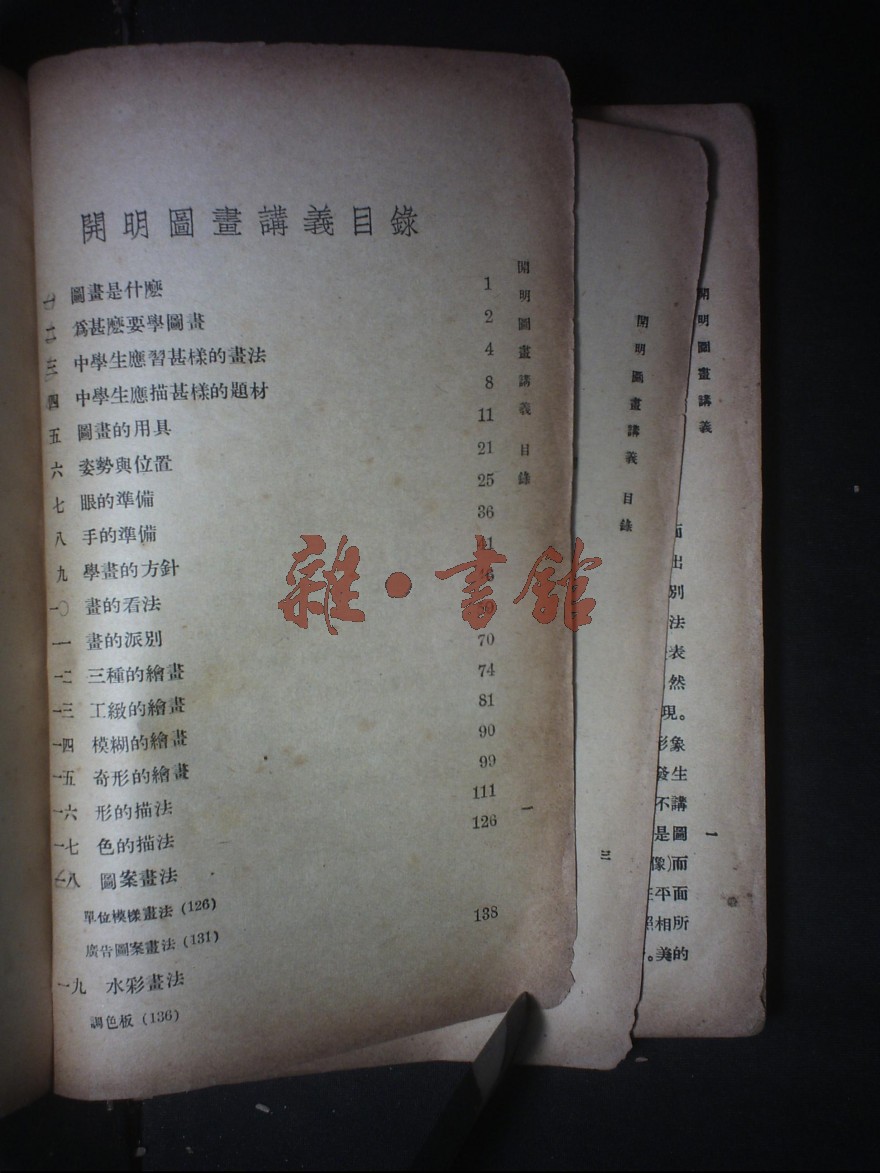 開明圖畫講義目錄
一 圖畫是什麽 1
二 爲甚麽要學圖畫 2
三 中學生應習甚樣的畫法 4
四 中學生應描甚樣的題材 8
五 圖畫的用具 11
六 姿勢與位置 21
七 眼的準備 25
八 手的準備 36
九 學畫的方針 41
一〇 畫的看法
一一 畫的派別
一二 三種的繪畫 70
一三 工緻的繪畫 74
一四 模糊的繪畫 81
一五 奇形的繪畫 90
一六 形的描法 99
一七 色的描法 111
一八 圖案畫法 126
單位模樣畫法 (126)
廣告圖案畫法 (131)
一九 水彩畫法 138
調色板 (136)
開明圖畫講義 目錄
一
開明圖畫講義 目錄
三
開明圖畫講義
一
面
出
別
法
表
然
現。
形象
發生
不講
是圖
像)而
平面
照相所
。美的
雜·書館